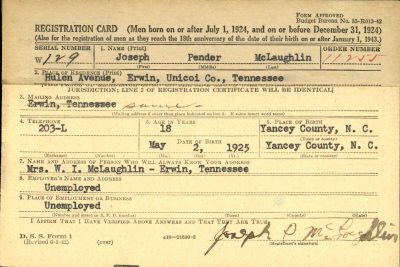 FORM APPROVED
Budget Bureau No. 33-R012-42
REGISTRATION CARD (Men born on or after July 1, 1924, and on or before December 31, 1924)
(Also for the registration of men as they reach the 18th anniversary of the date of their birth on or after January 1, 1943.)
SERIAL NUMBER 1. NAME (Print) ORDER NUMBER
W 129 Joseph Pender McLaughlin 11255
(First) (Middle) (Last)
2. PLACE OF RESIDENCE (Print)
Hulen Avenue, Erwin, Unicoi Co., Tennessee
(State)
JURISDICTION; LINE 2 OF REGISTRATION CERTIFICATE WILL BE IDENTICAL]
3. MAILING ADDRESS
Erwin, Tennessee same
[Mailing address if other than place indicated on line 2. If same insert word same]
4. TELEPHONE 5. AGE IN YEARS 6. PLACE OF BIRTH
203-L 18 Yancey County, N. C.
DATE OF BIRTH (Town or county)
May 2, 1925 Yancey County, N. C.
(Mo.) (Day) (Yr.) (State or country)
7. NAME AND ADDRESS OF PERSON WHO WILL ALWAYS KNOW YOUR ADDRESS
Mrs. W. I. McLaughlin - Erwin, Tennessee
8. EMPLOYER'S NAME AND ADDRESS
Unemployed
9. PLACE OF EMPLOYMENT OR BUSINESS
Unemployed
(Number and street or R. F. D. number) (Town) (County) (State)
I AFFIRM THAT I HAVE VERIFIED ABOVE ANSWERS AND THAT THEY ARE TRUE.
D. S. S. Form 1
(Revised 6-1-42) (over)
Joseph P. McLaughlin
(Registrant's signature)